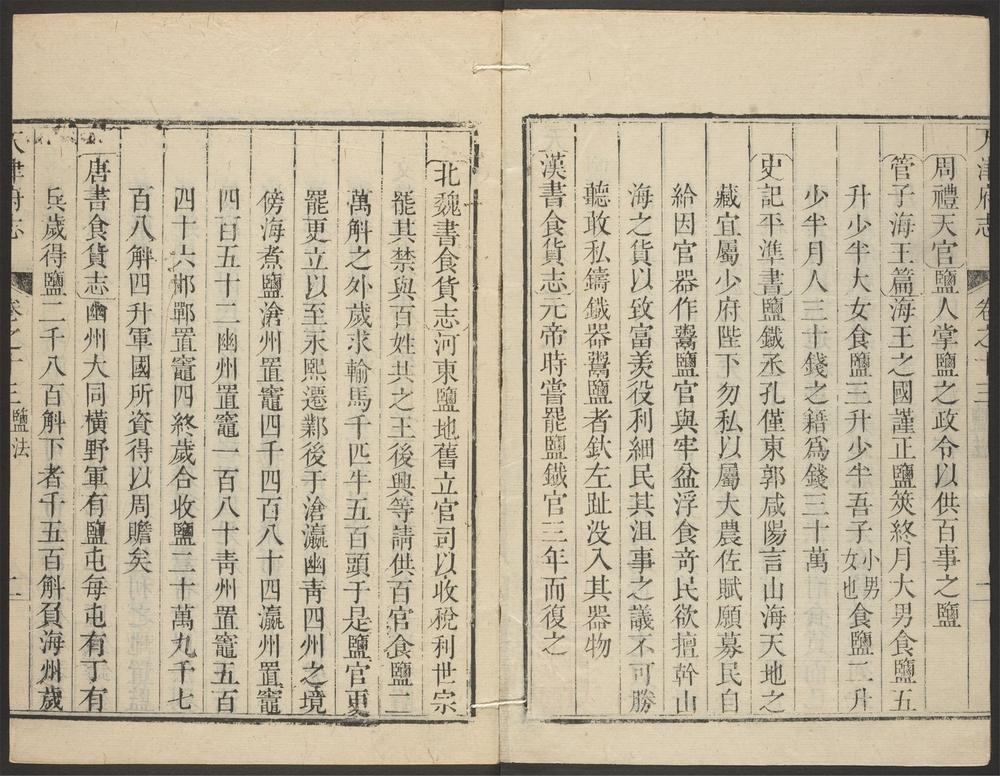 天津府志 卷之十三
周禮天官鹽人掌鹽之政令以供百事之鹽
管子海王篇海王之國謹正鹽筴終月大男食鹽五
升少半大女食鹽三升少半吾子小男女也食鹽二升
少半月人三十錢之籍爲錢三十萬
史記平準書鹽鐵丞孔僅東郭咸陽言山海天地之
藏宜屬少府陛下勿私以屬大農佐賦願募民自
給因官器作鬻鹽官與牢盆浮食奇民欲擅斡山
海之貨以致富羡役利細民其沮事之議不可勝
聽敢私鑄鐵器鬻鹽者釱左趾没入其器物
漢書食貨志元帝時嘗罷鹽鐵官三年而復之
北魏書食貨志河東鹽地舊立官司以收稅利世宗
罷其禁與百姓共之王後興等請供百官食鹽二
萬斛之外歲求輸馬千匹牛五百頭于是鹽官更
罷更立以至永熙遷鄴後于滄瀛幽靑四州之境
傍海煮鹽滄州置竈四千四百八十四瀛州置竈
四百五十二幽州置竈一百八十靑州置竈五百
四十六邯鄲置竈四終歲合收鹽二十萬九千七
百八斛四升軍國所資得以周贍矣
唐書食貨志幽州大同橫野軍有鹽屯每屯有丁有
兵歲得鹽二千八百斛下者千五百斛負海州歲
天津府志 卷之十三 鹽法 二